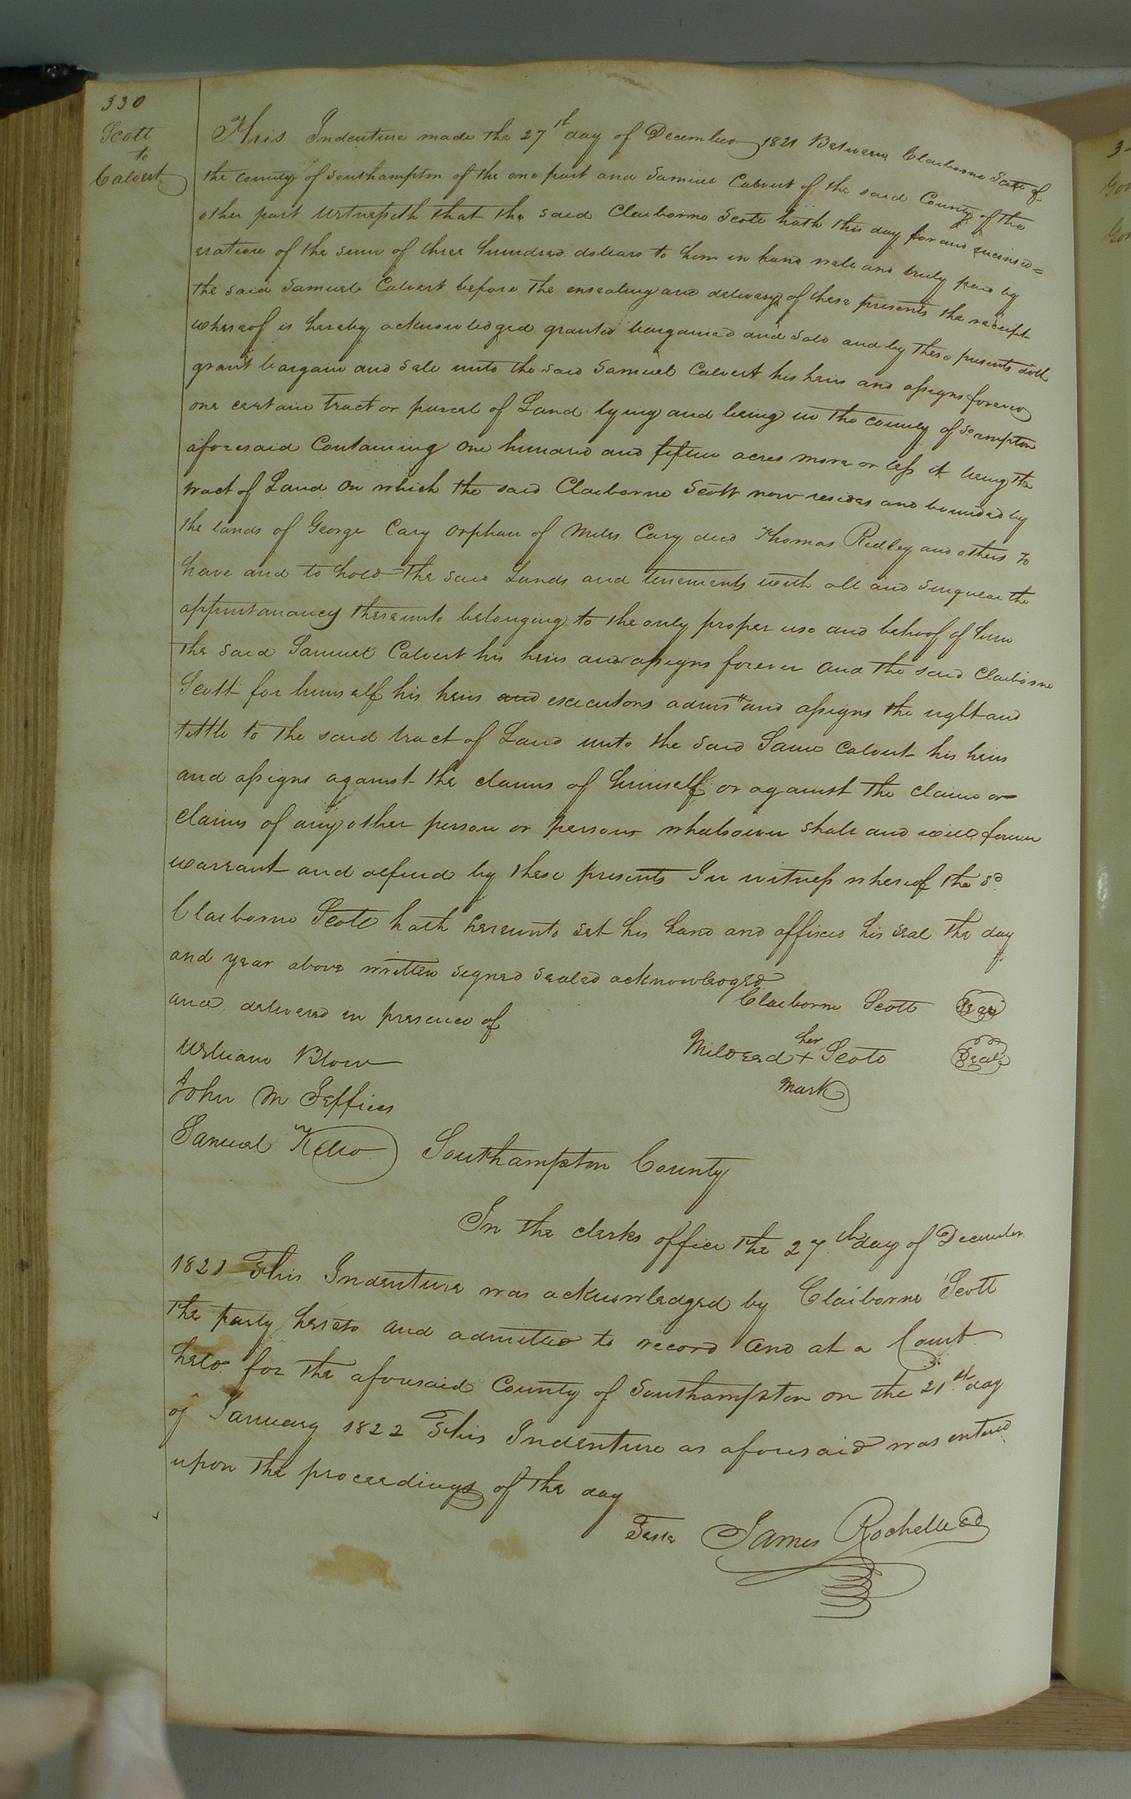 330
Scott
to
Calvert
This Indenture made the 27th day of December 1821 Between Claiborne Scott of
the county of Southampton of the one part and Samuel Calvert of the said County of the
other part Witnesseth that the said Claiborne Scott hath this day for and inconsid=
eration of the sum of three hundred dollars to him in hand well and truly paid by
the said Samuel Calvert before the ensealing and delivery of these presents the receipt
whereof is hereby acknowledged granted bargained and sold and by these presents doth
grant bargain and sell unto the said Samuel Calvert his heirs and assigns forever
one certain tract or parcel of Land lying and being in the county of Sampton
aforesaid Containing One hundred and fifteen acres more or less it being the
tract of Land On which the said Claiborne Scott now resides and bounded by
the lands of George Cary Orphan of Miles Cary decd Thomas Ridley and others To
have and to hold the said Lands and tenements with all and singular the
appurtanancy thereunto belonging to the only proper use and behoof of him
the said Samuel Calvert his heirs and assigns forever And the said Claiborne
Scott for himself his heirs and executors admrs and assigns the right and
tittle to the said tract of Land unto the said Saml Calvert his heirs
and assigns against the claims of himself or against the claim or
claims of any other person or persons whatsoever shall and will forever
warrant and defend by these presents In witness whereof the sd
Claiborne Scott hath hereunto set his hand and affixed his seal the day
and year above written signed sealed acknowledged
and delivered in presence of
Claiborne Scott Seal
William Blow
her
Mildread + Scott Seal
mark
John M Jeffries
Samuel Kello
Southampton County
In the clerks office the 27th day of December
1821 This Indenture was acknowledged by Claiborne Scott
the party hereto and admitted to record and at a Court
held for the aforesaid County of Southampton on the 21st day
of January 1822 This Indenture as aforesaid was entered
upon the proceedings of the day
Teste James Rochelle CC